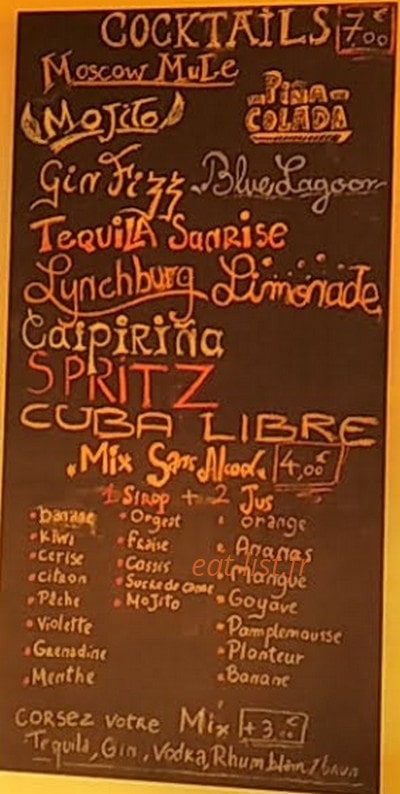 COCKTAILS 7,00€
Moscow Mule
Mojito
PiÑA COLADA
Gin Fizz
Blue Lagoon
TEQUILA SunRiSE
Lynchburg Limonade
CaipiRiña
SPRiTZ
CUBA LIBRE
Mix Sans Alcool 4,00€
1 SiRop + 2 Jus
banane
Kiwi
Cerise
citron
Pêche
Violette
Grenadine
Menthe
Orgeat
Fraise
Cassis
Sucre de canne
Mojito
orange
Ananas
Mangue
Goyave
Pamplemousse
Planteur
Banane
eat-list.fr
CORSEZ VOTRE Mix +3,00€
Tequila, Gin, Vodka, Rhum blanc/brun